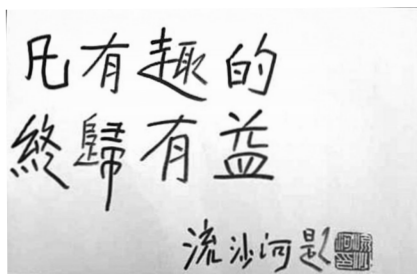 凡有趣的
終歸有益
流沙河題